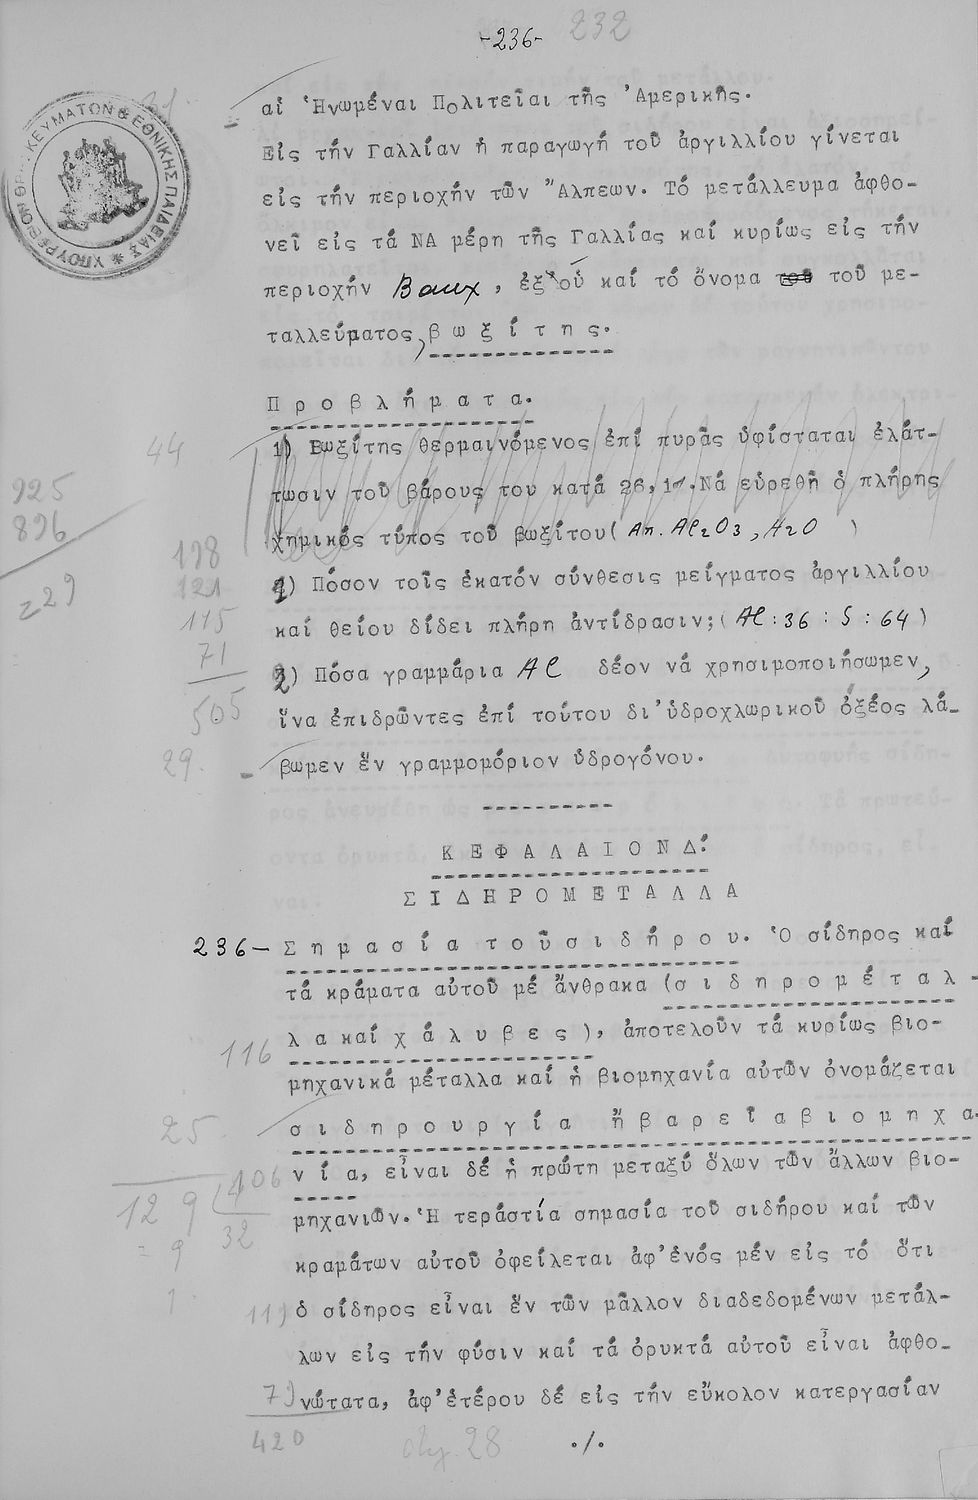 -236- 232
αἱ Ἡνωμέναι Πολιτεῖαι τῆς Ἀμερικῆς.
Εἰς τήν Γαλλίαν ἡ παραγωγή τοῦ ἀργιλλίου γίνεται
εἰς τήν περιοχήν τῶν Ἄλπεων. Τό μετάλλευμα ἀφθο-
νεῖ εἰς τά ΝΑ μέρη τῆς Γαλλίας καί κυρίως εἰς τήν
περιοχήν Baux, ἐξ οὗ καί τό ὄνομα τοῦ με-
ταλλεύματος, β ω ξ ί τ η ς.
Π ρ ο β λ ή μ α τ α.
1) Βωξίτης θερμαινόμενος ἐπί πυρᾶς ὑφίσταται ἐλάτ-
τωσιν τοῦ βάρους του κατά 26,1. Νά εὑρεθῆ ὁ πλήρης
χημικός τύπος τοῦ βωξίτου( Απ. Al2O3, H2O )
1) Πόσον τοῖς ἑκατόν σύνθεσις μείγματος ἀργιλλίου
καί θείου δίδει πλήρη ἀντίδρασιν;( Al : 36 : S : 64 )
2) Πόσα γραμμάρια Al δέον νά χρησιμοποιήσωμεν,
ἵνα ἐπιδρῶντες ἐπί τούτου δι' ὑδροχλωρικοῦ ὀξέος λά-
βωμεν ἕν γραμμομόριον ὑδρογόνου.
Κ Ε Φ Α Λ Α Ι Ο Ν Δ!
Σ Ι Δ Η Ρ Ο Μ Ε Τ Α Λ Λ Α
236- Σ η μ α σ ί α τ ο ῦ σ ι δ ή ρ ο υ. Ὁ σίδηρος καί
τά κράματα αὐτοῦ μέ ἄνθρακα (σ ι δ η ρ ο μ έ τ α λ -
λ α καί χ ά λ υ β ε ς ), ἀποτελοῦν τά κυρίως βιο-
μηχανικά μέταλλα καί ἡ βιομηχανία αὐτῶν ὀνομάζεται
σ ι δ η ρ ο υ ρ γ ί α ἤ β α ρ ε ῖ α β ι ο μ η χ α-
ν ί α, εἶναι δέ ἡ πρώτη μεταξύ ὅλων τῶν ἄλλων βιο-
μηχανιῶν. Ἡ τεράστία σημασία τοῦ σιδήρου καί τῶν
κραμάτων αὐτοῦ ὀφείλεται ἀφ' ἑνός μέν εἰς τό ὅτι
ὁ σίδηρος εἶναι ἕν τῶν μᾶλλον διαδεδομένων μετάλ-
λων εἰς τήν φύσιν καί τά ὀρυκτά αὐτοῦ εἶναι ἀφθο-
νώτατα, ἀφ' ἑτέρου δέ εἰς τήν εὔκολον κατεργασίαν
./.
ΥΠΟΥΡΓΕΙΟΝ ΘΡΗΣΚΕΥΜΑΤΩΝ & ΕΘΝΙΚΗΣ ΠΑΙΔΕΙΑΣ
44
925
896
29
198
121
115
71
505
29.
116
25
106
12 9
4
32
9
1
119
71
420
28